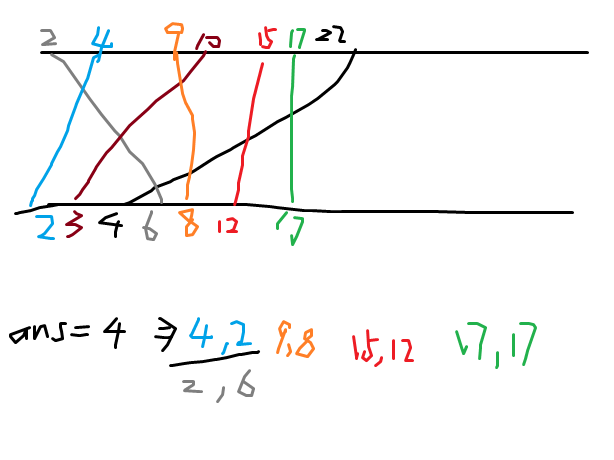 2 4 9 10 15 17 22
2 3 4 6 8 12 17
ans = 4 ⇒ 4,2 9,8 15,12 17,17
2,6